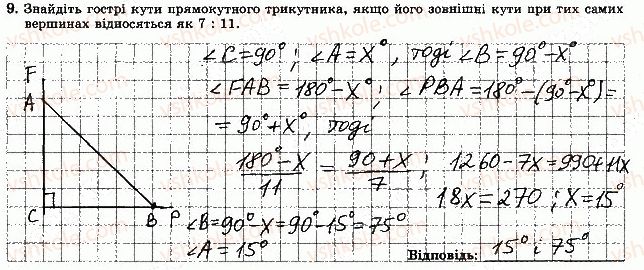 9. Знайдіть гострі кути прямокутного трикутника, якщо його зовнішні кути при тих самих
вершинах відносяться як 7 : 11.
∠C=90°; ∠A=X°, тоді ∠B=90°-X°
∠FAB=180°-X°; ∠PBA=180°-(90°-X°)=
=90°+X°, тоді
(180°-X)/11 = (90°+X)/7; 1260-7X=990+11X
18X=270; X=15°
∠B=90°-X=90°-15°=75°
∠A=15°
Відповідь: 15° і 75°
F
A
C
B
P